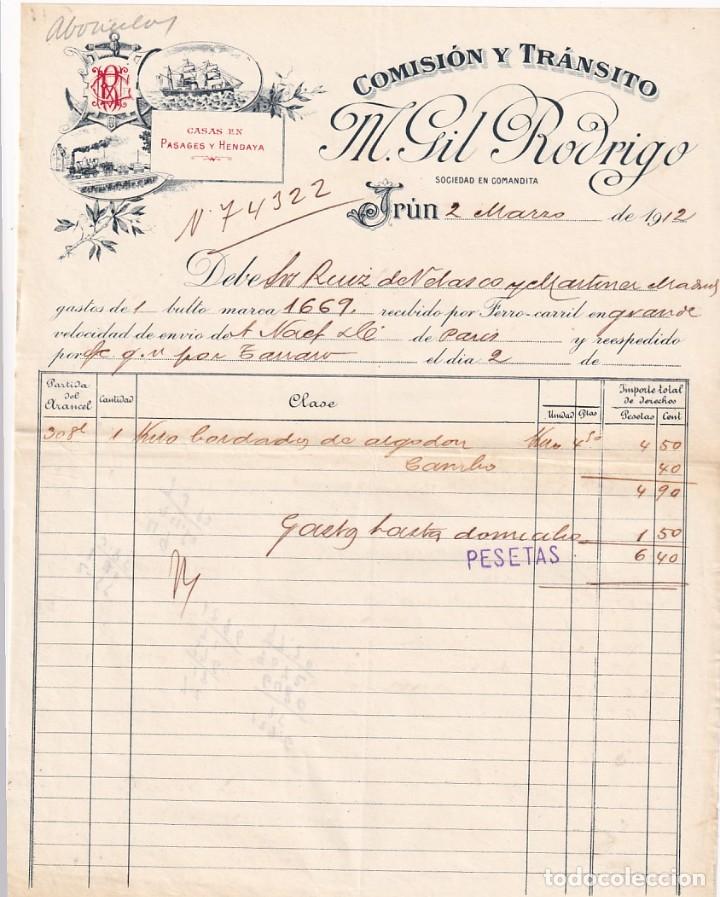 COMISIÓN Y TRÁNSITO
M. Gil Rodrigo
SOCIEDAD EN COMANDITA
CASAS EN
PASAGES Y HENDAYA
Nº 74322
Irún 2 Marzo de 1912
Debe Sres Ruiz de Velasco y Martinez Madrid
gastos de 1 bulto marca 1669. recibido por Ferro-carril en grande
velocidad de envio de A Naef & Cº de Paris y reespedido
por g. v. por el dia 2 de
Partida del Arancel Cantidad Clase Unidad Ptas Importe total de derechos Pesetas Cent
308 1 Kilo bordados de algodon Kilo 4 50 4 50
Cambio 40
4 90
Gastos hasta domicilio 1 50
PESETAS 6 40
todocoleccion.net